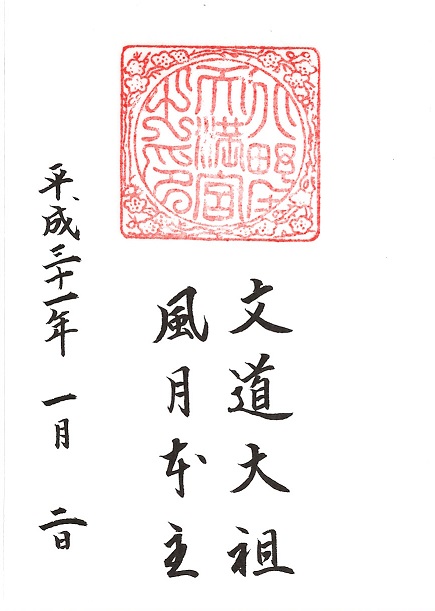 天満宮
文道大祖
風月本主
平成三十一年 一月 二日